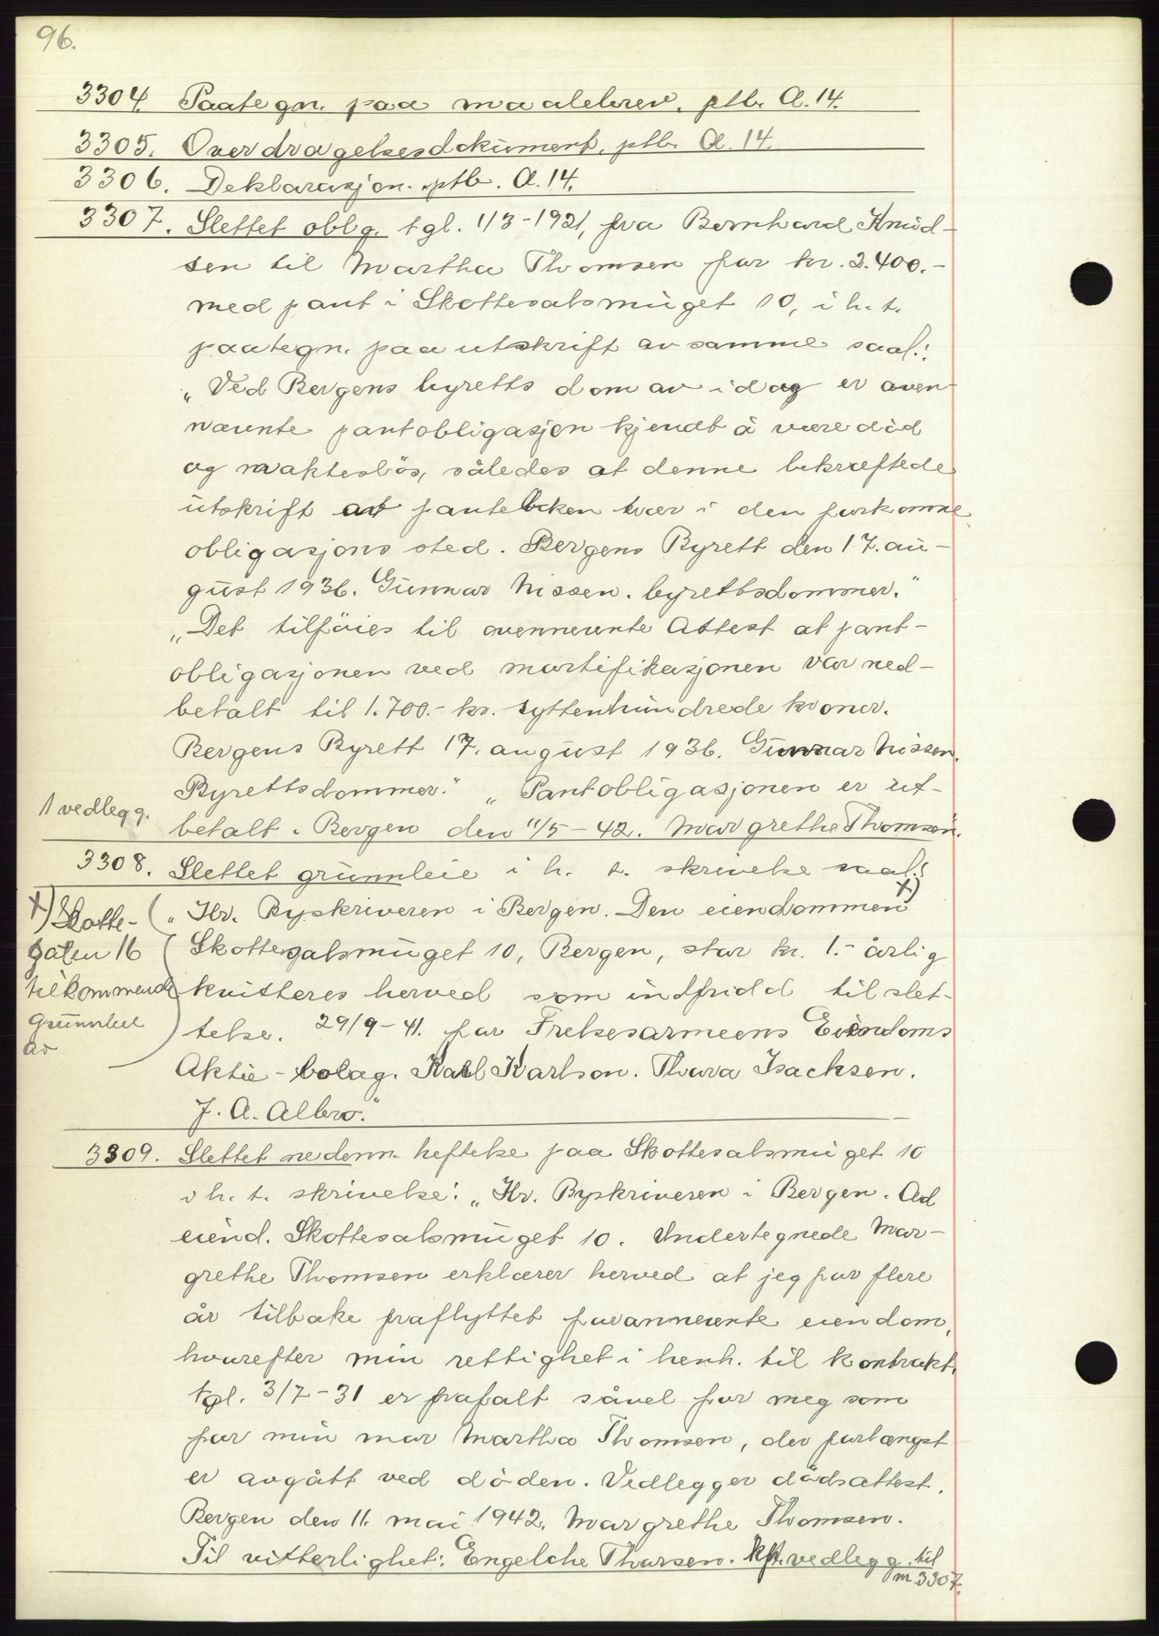 96.
3304. Paategn. paa maalebrev. ptb. A. 14.
3305. Overdragelsesdokument. ptb. A. 14
3306. Deklarasjon. ptb. A. 14.
3307. Slettet oblg. tgl. 1/3-1921, fra Bernhard Knud-
sen til Martha Thomsen for kr. 2.400.-
med pant i Skottesalsmuget 10, i h. t.
paategn. paa utskrift av samme saal.:
„Ved Bergens byretts dom av idag er oven-
nævnte pantobligasjon kjendt å være död
og makteslös, således at denne bekræftede
utskrift av panteboken trær i den forkomne
obligasjons sted. Bergens Byrett den 17. au-
gust 1936. Gunnar Nissen. byrettsdommer."
„Det tilföies til ovennevnte Attest at pant-
obligasjonen ved mortifikasjonen var ned-
betalt til 1.700.- kr. syttenhundrede kroner.
Bergens Byrett 17. august 1936. Gunnar Nissen.
Byrettsdommer." „Pantobligasjonen er ut-
1 vedlegg.
betalt. Bergen den 11/5-42. Margrethe Thomsen.
3308. Slettet grunnleie i h. t. skrivelse saal.:
x) Skotte-
gaten 16
tilkommende
grunnleie
av
„Hr. Byskriveren i Bergen. Den eiendommen x)
Skottesalsmuget 10, Bergen, stor kr. 1.- årlig
kvitteres herved som indfridd til slet-
telse. 29/9-41. for Frelsesarmeens Eiendoms
Aktie-bolag. Karl Karlson. Thora Isachsen.
J. A. Albro."
3309. Slettet nedenn. heftelse paa Skottesalsmuget 10
i h. t. skrivelse: „Hr. Byskriveren i Bergen. Ad
eiend. Skottesalsmuget 10. Undertegnede Mar-
grethe Thomsen erklærer herved at jeg for flere
år tilbake fraflyttet forannevnte eiendom,
hvorefter min rettighet i henh. til kontrakt
tgl. 3/7-31 er frafalt såvel for meg som
for min mor Martha Thomsen, der forlængst
er avgått ved döden. Vedlegger dödsattest.
Bergen den 11. mai 1942. Margrethe Thomsen.
Til vitterlighet: Engelche Thorsen. Kfr. vedlegg til
nr. 3307.